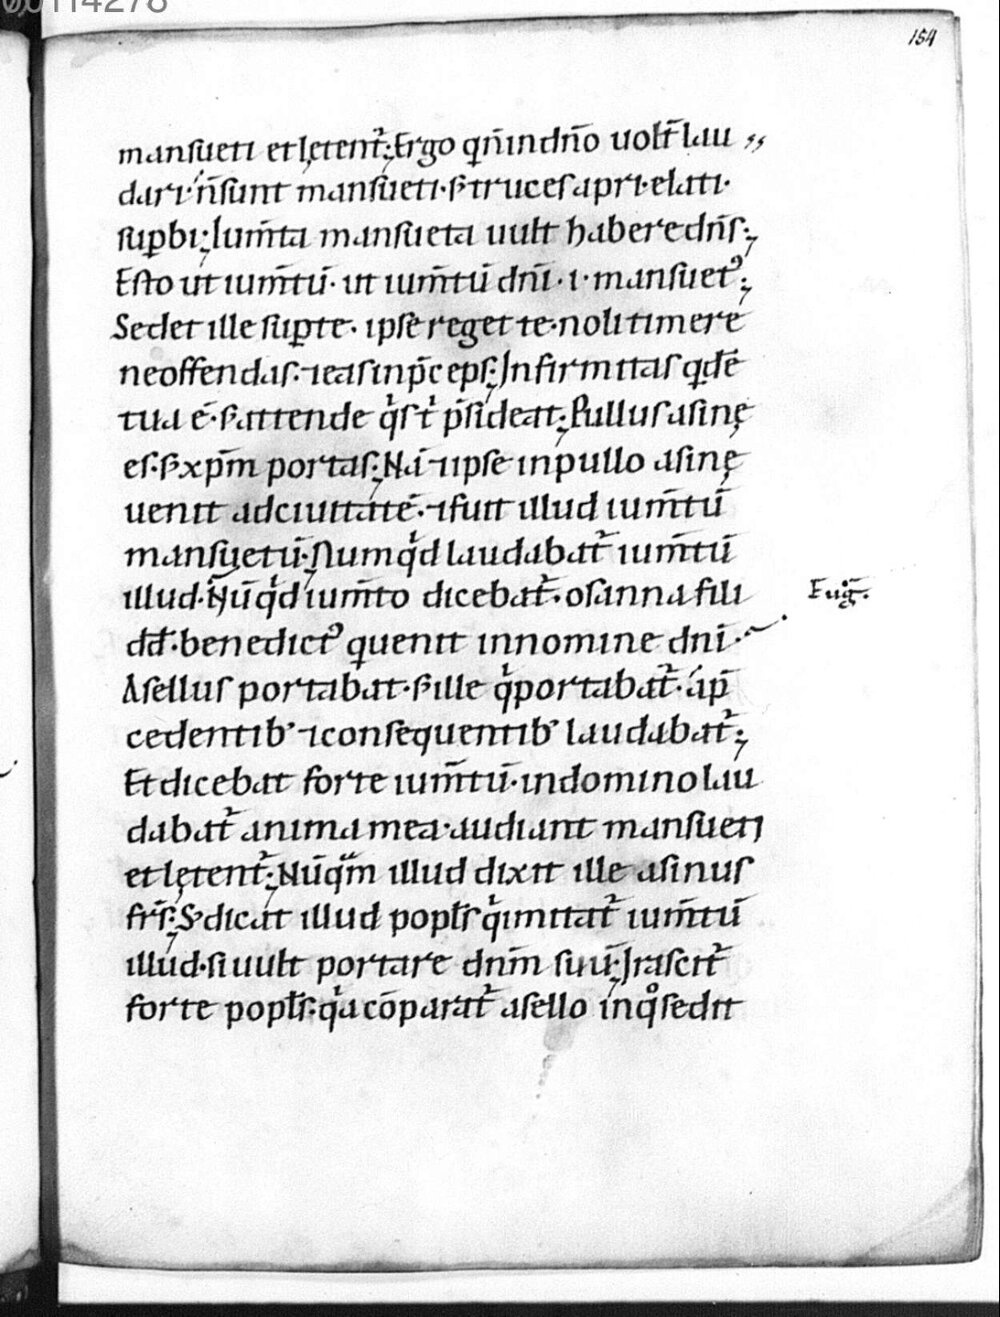 154
mansueti et lętent᷑; Ergo qn̄ in dn̄o uolt̄ lau
dari· n̄ sunt mansueti· s̄ truces apri· elati·
sup̱bi; Ium̄ta mansueta uult habere dn̄s;
Esto ut ium̄tū· ut ium̄tū dn̄i· ·i· mansuet᷒;
Sedet ille sup̱ te· ipse reget te· noli timere
ne offendas· ⁊ eas in p̄ceps; Infirmitas qdē
tua ē· s̄ attende qͥs tͥ p̄sideat; Pullus asinę
es· s̄ xp̄m portas; Nā ⁊ ipse in pullo asinę
uenit ad ciuitatē· ⁊ fuit illud ium̄tū
mansuetū; Numqͥd laudabat᷑ ium̄tū
illud· Nūqͥd ium̄to dicebat᷑· osanna fili
dd̄· benedict᷒ qui uenit in nomine dn̄i·
Asellus portabat· s̄ ille qͥ portabat᷑· a p̄
cedentib᷒ ⁊ consequentib᷒ laudabat᷑;
Et dicebat forte ium̄tū· in domino lau
dabat᷑ anima mea· audiant mansueti
et lętent᷑; Nūqͣm illud dixit ille asinus
fr̄s; S; dicat illud popl̄s qͥ imitat᷑ ium̄tū
illud· si uult portare dn̄m suū; Irascit᷑
forte popl̄s· qͥa cōparat᷑ asello in qͦ sedit